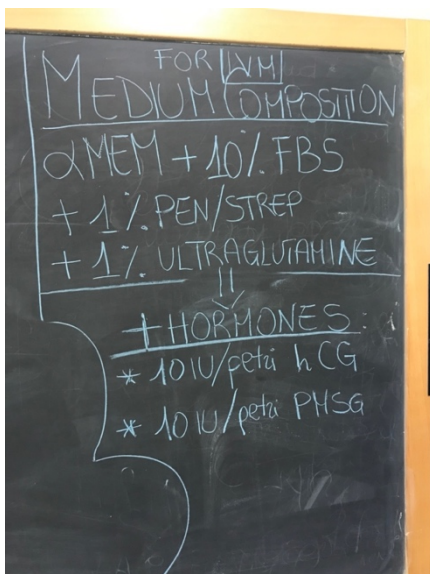 FOR IVM
MEDIUM COMPOSITION
αMEM + 10% FBS
+ 1% PEN/STREP
+ 1% ULTRAGLUTAMINE
+ HORMONES:
* 10 IU/petri hCG
* 10 IU/petri PMSG